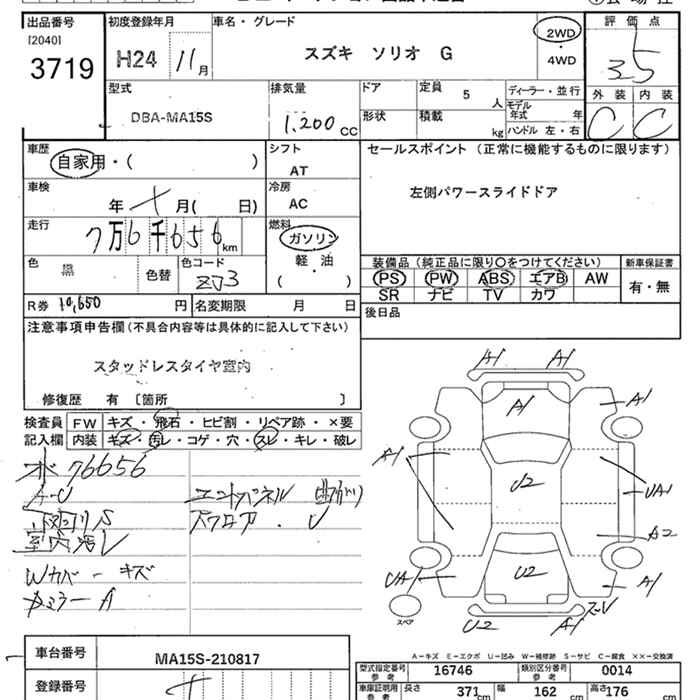 出品番号 初度登録年月 車名・グレード 評価点
[2040]
3719 H24 11月 スズキ ソリオ G 2WD ・ 4WD 3.5
型式 排気量 ドア 定員 5 人 ディーラー・並行 外装 内装
DBA-MA15S 1,200 CC 形状 積載 kg モデル年式 年 ハンドル 左・右 C C
車歴 シフト セールスポイント (正常に機能するものに限ります)
自家用・( ) AT
車検 冷房 左側パワースライドドア
年 月( 日) AC
走行 燃料
7万6千656km ガソリン
色 色コード 軽・油 装備品 (純正品に限り○をつけてください) 新車保証書
黒 色替 ZJ3 ( ) PS PW ABS エアB AW 有・無
SR ナビ TV カワ
R券 10,650 円 名変期限 月 日 後日品
注意事項申告欄 (不具合内容等は具体的に記入して下さい)
スタッドレスタイヤ室内
修復歴 有 〔箇所 〕
検査員 FW キズ・飛石・ヒビ割・リペア跡・×要
記入欄 内装 キズ・汚レ・コゲ・穴・スレ・キレ・破レ
76656
A-U エンドパネル 曲がり
下廻りS バックドア・U
室内汚レ
Wカバーキズ
カメラーA
A1 A1
A1 A1
A1
U2 UA1
A2
UA1 U2 A1
スペア U2 A1 ズレ
A-キズ E-エクボ U-凹み W-補修跡 S-サビ C-腐食 ××-交換済
車台番号 MA15S-210817 型式指定番号 参考 16746 類別区分番号 参考 0014
登録番号 車庫証明用 参考 長さ 371cm 幅 162cm 高さ 176cm